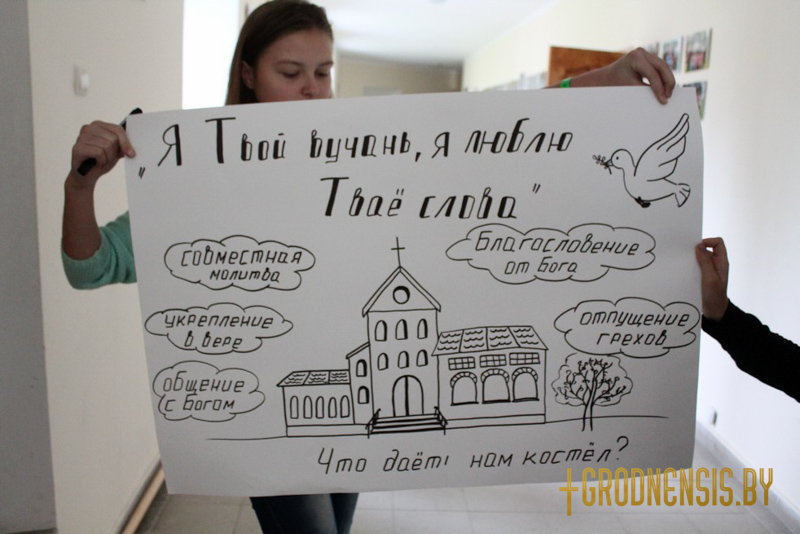 „Я Твой вучань, я люблю
Тваё слова"
совместная
молитва
Благословение
от Бога
укрепление
в вере
отпущение
грехов
общение
с Богом
Что даёт нам костёл?
GRODNENSIS.BY